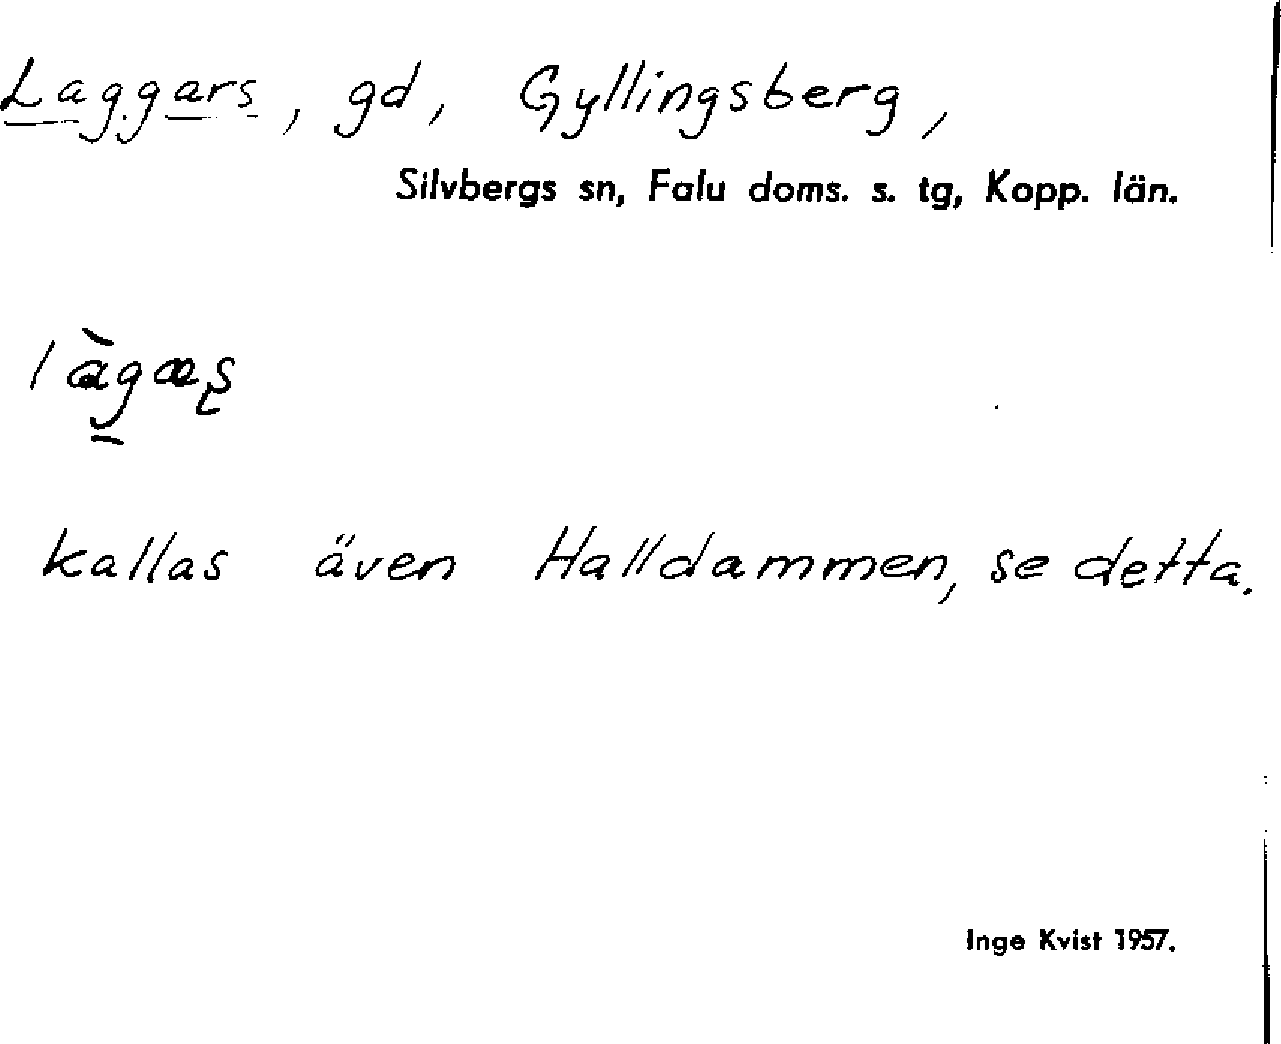 Laggars, gd, Gyllingsberg,
Silvbergs sn, Falu doms. s. tg, Kopp. län.
làg̱æș
kallas även Halldammen, se detta.
Inge Kvist 1957.